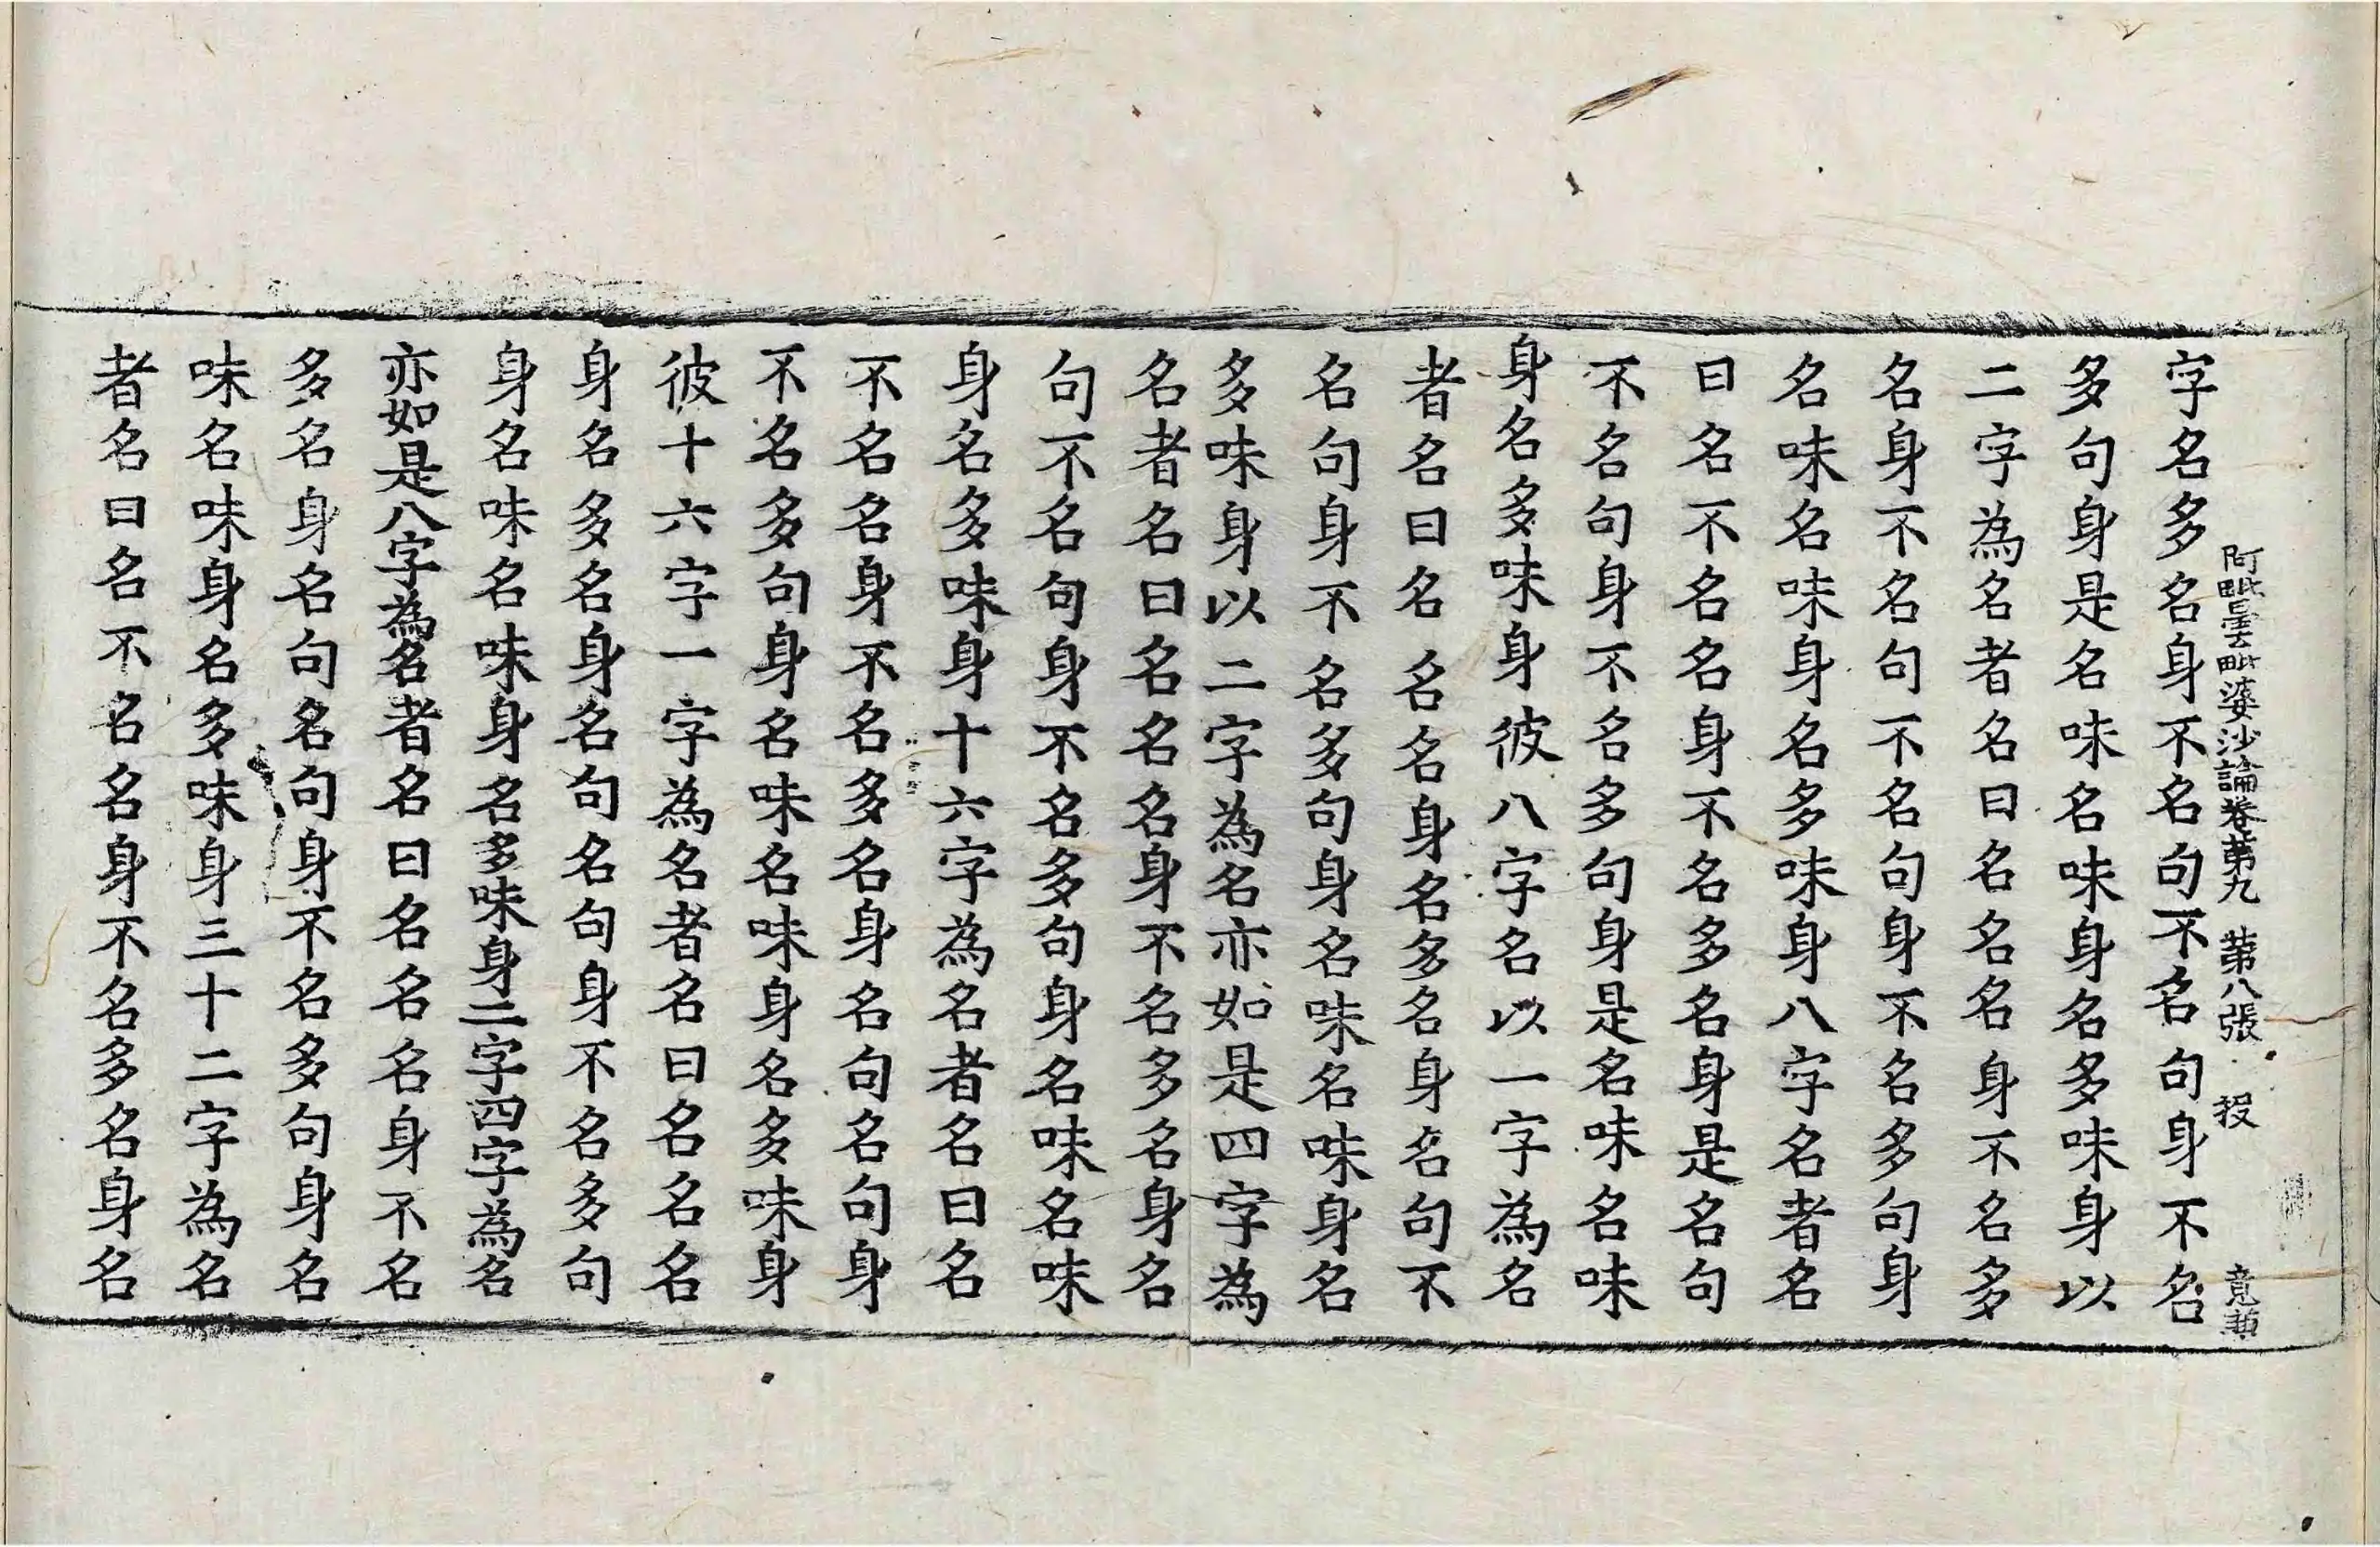 阿毗曇毗婆沙論卷第九 第八張 投
字名多名身不名句不名句身不名
多句身是名味名味身名多味身以
二字為名者名曰名名名身不名多
名身不名句不名句身不名多句身
名味名味身名多味身八字名者名
曰名不名名身不名多名身是名句
不名句身不名多句身是名味名味
身名多味身彼八字名以一字為名
者名曰名名名身名多名身名句不
名句身不名多句身名味名味身名
多味身以二字為名亦如是四字為
名者名曰名名名身不名多名身名
句不名句身不名多句身名味名味
身名多味身十六字為名者名曰名
不名名身不名多名身名句名句身
不名多句身名味名味身名多味身
彼十六字一字為名者名曰名名名
身名多名身名句名句身不名多句
身名味名味身名多味身二字四字為名
亦如是八字為名者名曰名名名身不名
多名身名句名句身不名多句身名
味名味身名多味身三十二字為名
者名曰名不名名身不名多名身名